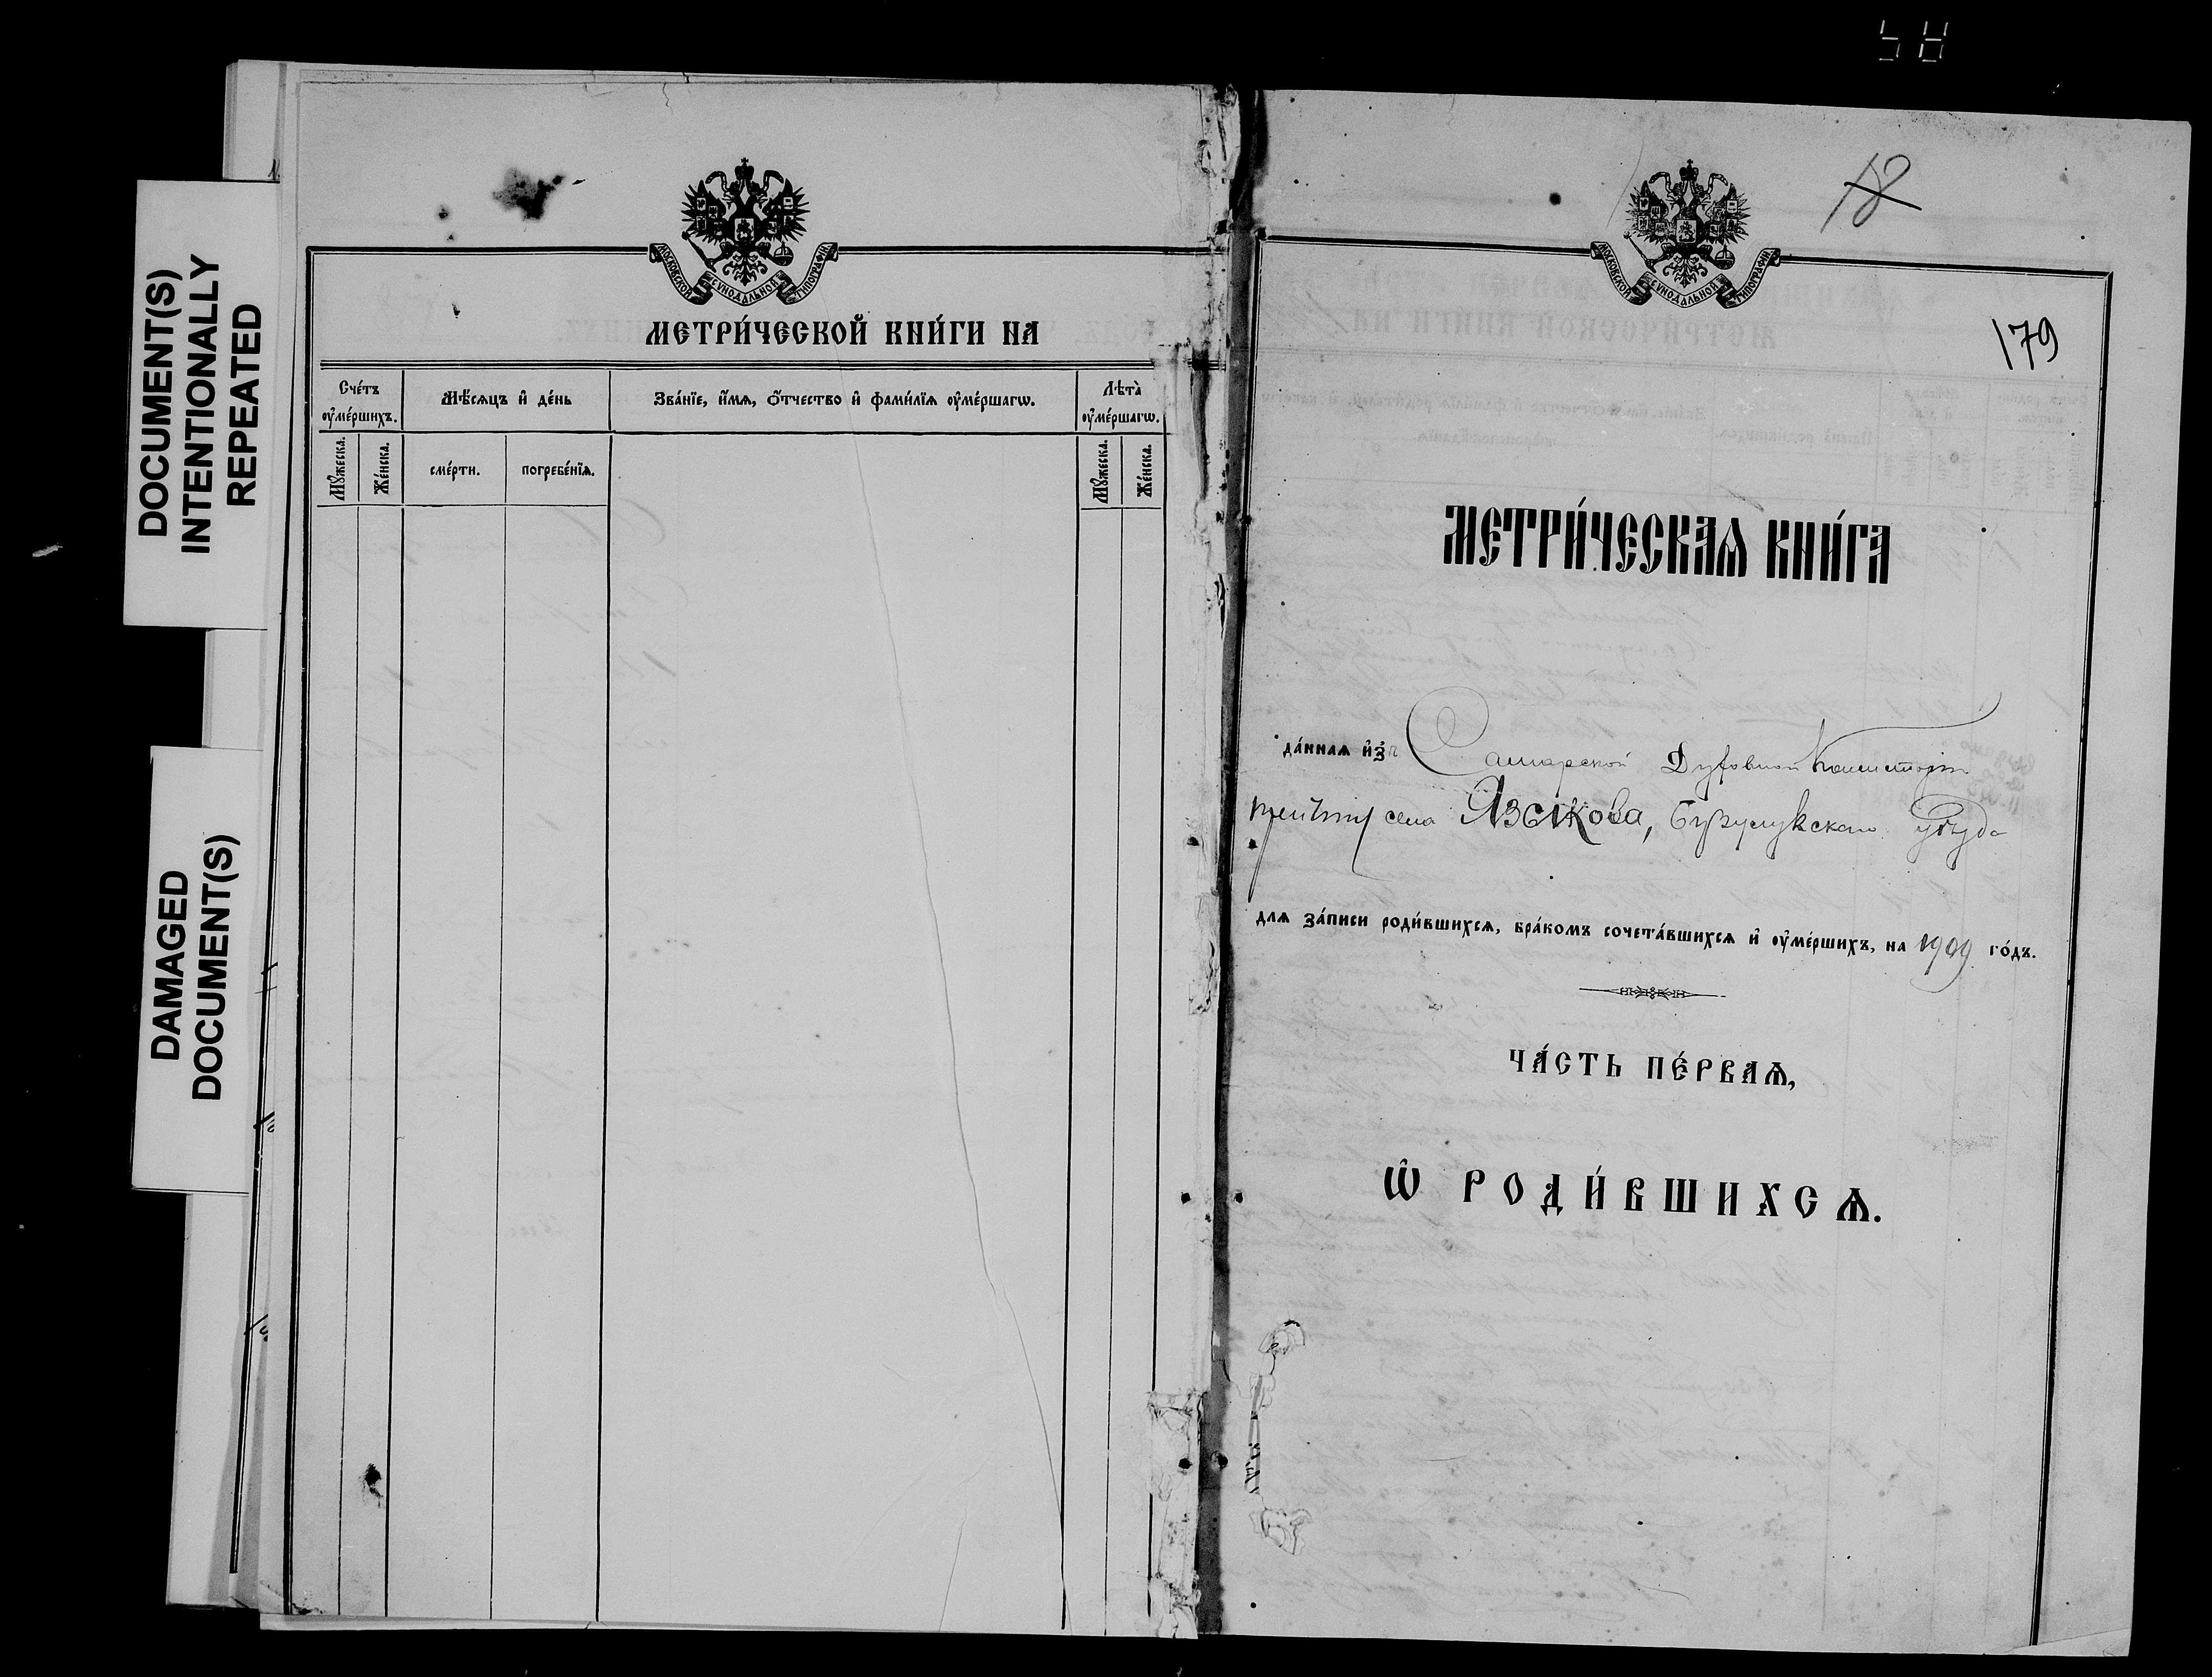 DOCUMENT(S)
INTENTIONALLY
REPEATED
DAMAGED
DOCUMENT(S)
МОСКОВСКОЙ СѴНОДАЛЬНОЙ ТИПОГРАФІИ
МЕТРИ́ЧЕСКОЙ КНИ́ГИ НА
Сче́тъ ᲂу҆ме́ршихъ.
Мѣ́сяцъ и҆ де́нь
Зва́нїе, и҆́мѧ, ѻ҆́тчество и҆ фами́лїѧ ᲂу҆ме́ршагѡ.
Лѣ́та ᲂу҆ме́ршагѡ.
Мꙋ́жеска.
Же́нска.
сме́рти.
погребе́нїѧ.
Мꙋ́жеска.
Же́нска.
18
МОСКОВСКОЙ СѴНОДАЛЬНОЙ ТИПОГРАФІИ
179
МЕТРИ́ЧЕСКАѦ КНИ́ГА
да́ннаѧ и҆зъ Самарской Духовной Консисторіи
села Языкова, Бузулукскаго уѣзда
длѧ за́писи роди́вшихсѧ, бра́комъ сочета́вшихсѧ и҆ ᲂу҆ме́ршихъ, на 1909 го́дъ.
ЧА́СТЬ ПЕ́РВАѦ,
Ѽ РОДИ́ВШИХСѦ.